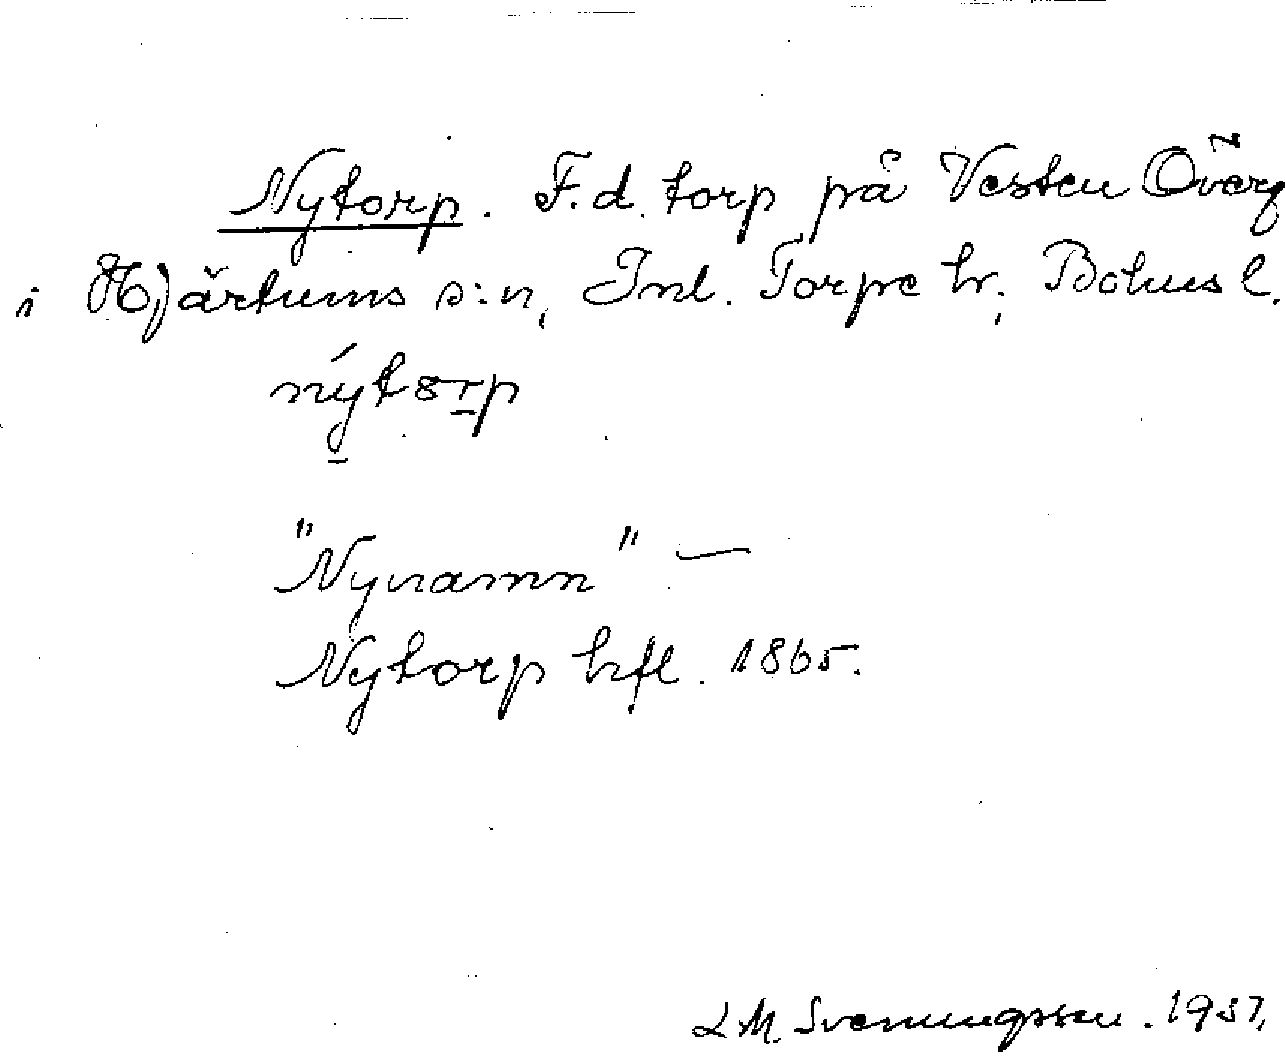 Nytorp. F.d. torp på Vesten Överg
i Hjärtums s:n, Inl. Torpe hr, Bohusl.
nýtorp
"Nynamn" —
Nytorp hfl. 1865.
L M. Svenungsson. 1937.